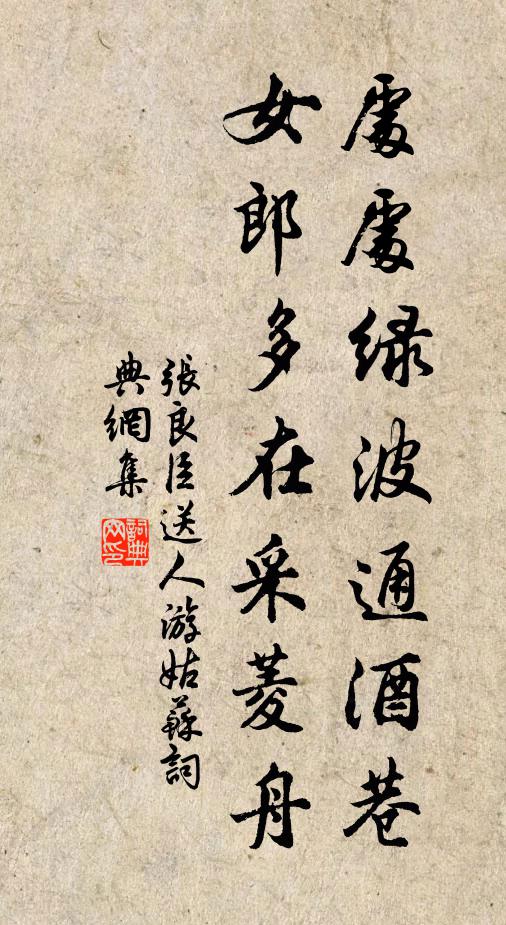 處處緑波通酒巷
女郎多在采菱舟
張良臣送人游姑蘇詞
典網集
詞典網印